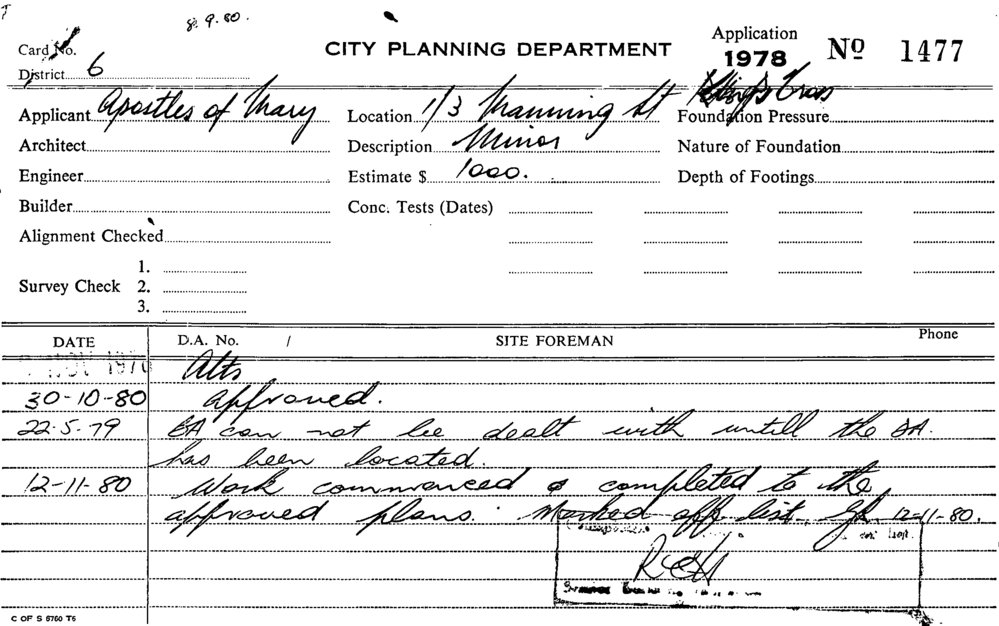 8.9.80.
Card No.
CITY PLANNING DEPARTMENT
Application
1978 No 1477
District 6
Applicant Apostles of Mary
Location 1/3 Manning St Kings Cross
Foundation Pressure
Architect
Description Minor
Nature of Foundation
Engineer
Estimate $ 1000.
Depth of Footings
Builder
Conc. Tests (Dates)
Alignment Checked
1.
Survey Check 2.
3.
DATE D.A. No. / SITE FOREMAN Phone
NOV 1978 Alts
30-10-80 approved.
22.5.79 BA can not be dealt with untill the DA.
has been located.
12-11-80 Work commenced & completed to the
approved plans. Marked off list. 12-11-80.
C OF S 6760 T6